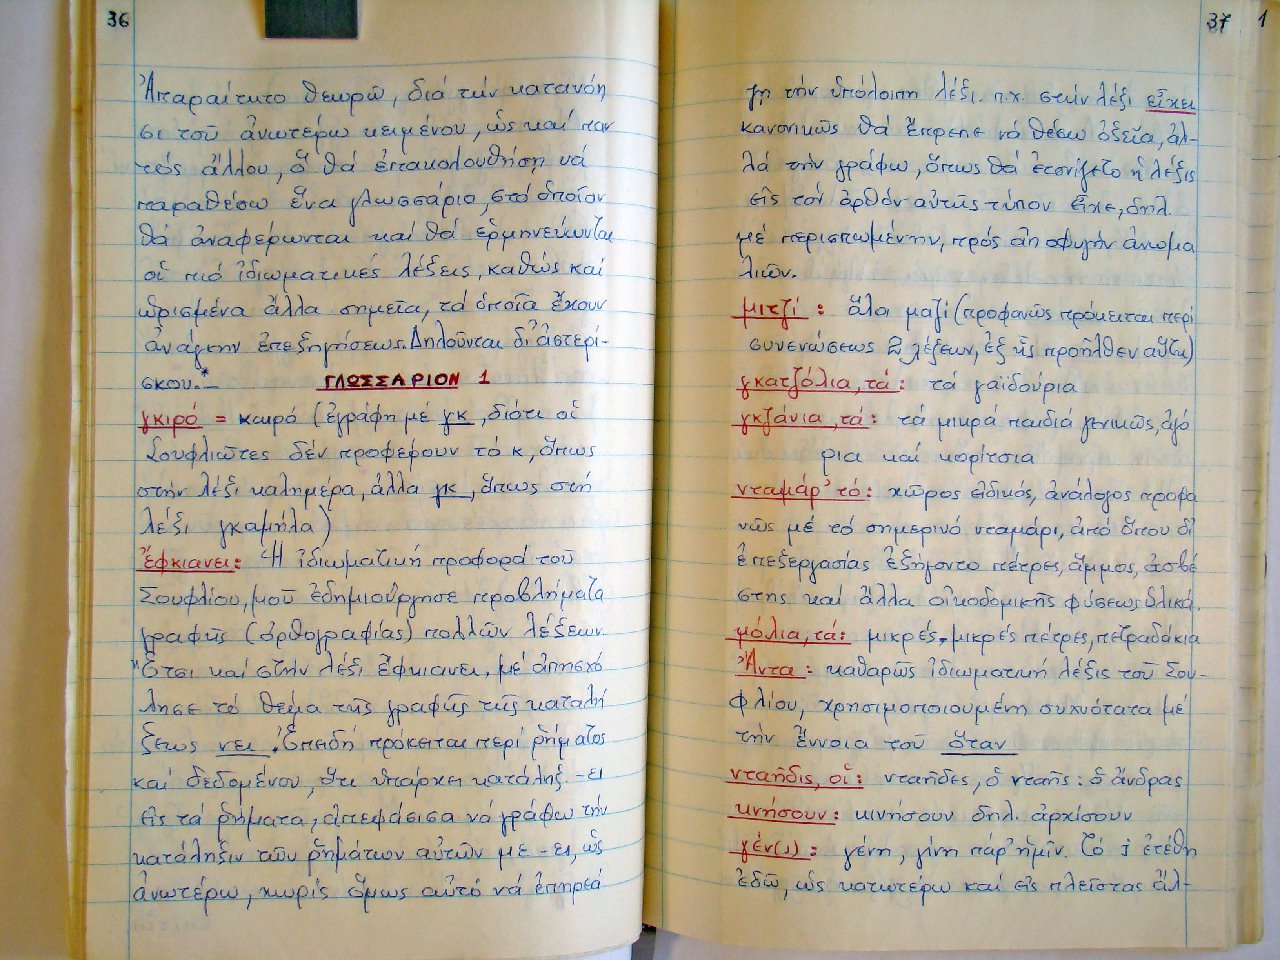 36
Ἀπαραίτητο θεωρῶ, διά τήν κατανόη
σι τοῦ ἀνωτέρω κειμένου, ὡς καί παν
τός ἄλλου, ὅ θά ἐπακολουθήση νά
παραθέσω ἕνα γλωσσάριο, στό ὁποῖον
θά ἀναφέρωνται καί θά ἑρμηνεύωνται
οἱ πιό ἰδιωματικές λέξεις, καθώς καί
ὡρισμένα ἄλλα σημεῖα, τά ὁποῖα ἔχουν
ἀνάγκην ἐπεξηγήσεως. Δηλοῦνται δι' ἀστερί-
σκου.*—
ΓΛΩΣΣΑΡΙΟΝ 1
γκιρό = καιρό (ἐγράφη μέ γκ, διότι οἱ
Σουφλιῶτες δέν προφέρουν τό κ, ὅπως
στήν λέξι καλημέρα, ἀλλα γκ, ὅπως στή
λέξι γκαμήλα)
Ἔφκιανει: Ἡ ἰδιωματική προφορά τοῦ
Σουφλίου, μοῦ ἐδημιούργησε προβλήματα
γραφῆς (ὀρθογραφίας) πολλῶν λέξεων.
Ἔτσι καί στήν λέξι ἔφκιανει, μέ ἀπησχό
λησε τό θέμα τῆς γραφῆς τῆς καταλή
ξεως νει. Ἐπειδή πρόκειται περί ρήματος
καί δεδομένου, ὅτι ὑπάρχει κατάληξ. -ει
εἰς τά ρήματα, ἀπεφάσισα νά γράφω τήν
κατάληξιν τῶν ρημάτων αὐτῶν με -ει, ὡς
ἀνωτέρω, χωρίς ὅμως αὐτό νά ἐπηρεά
37
1
ζη τήν ὑπόλοιπη λέξι. π.χ. στήν λέξι εἶχει
κανονικῶς θά ἔπρεπε νά θέσω ὀξεῖα, ἀλ-
λά τήν γράφω, ὅπως θά ἐτονίζετο ἡ λέξις
εἰς τόν ὀρθόν αὐτῆς τύπον εἶχε, δηλ.
μέ περισπωμένην, πρός ἀποφυγήν ἀνωμα
λιῶν.
μιτζί : ὅλοι μαζί (προφανῶς πρόκειται περί
συνενώσεως 2 λέξεων, ἐξ ἧς προῆλθεν αὕτη)
γκατζόλια, τά : τά γαϊδούρια
γκζάνια, τά : τά μικρά παιδιά γενικῶς, ἀγό
ρια καί κορίτσια
νταμάρ' τό : χῶρος εἰδικός, ἀνάλογος προφα
νῶς μέ τό σημερινό νταμάρι, ἀπό ὅπου δι'
ἐπεξεργασίας ἐξήγοντο πέτρες, ἄμμος, ἀσβέ
στης καί ἄλλα οἰκοδομικῆς φύσεως ὑλικά.
μόλια, τά: μικρές-μικρές πέτρες, πετραδάκια
Ἄντα : καθαρῶς ἰδιωματική λέξις τοῦ Σου-
φλίου, χρησιμοποιουμένη συχνότατα μέ
τήν ἔννοια τοῦ ὅταν
νταῆδις, οἱ : νταῆδες, ὁ νταῆς : ὁ ἄνδρας
κνήσουν : κινήσουν δηλ. ἀρχίσουν
γέν(ι) : γένη, γίνη παρ' ἡμῖν. Τό ι ἐτέθη
ἐδῶ, ὡς κατωτέρω καί εἰς πλεῖστας ἄλ-